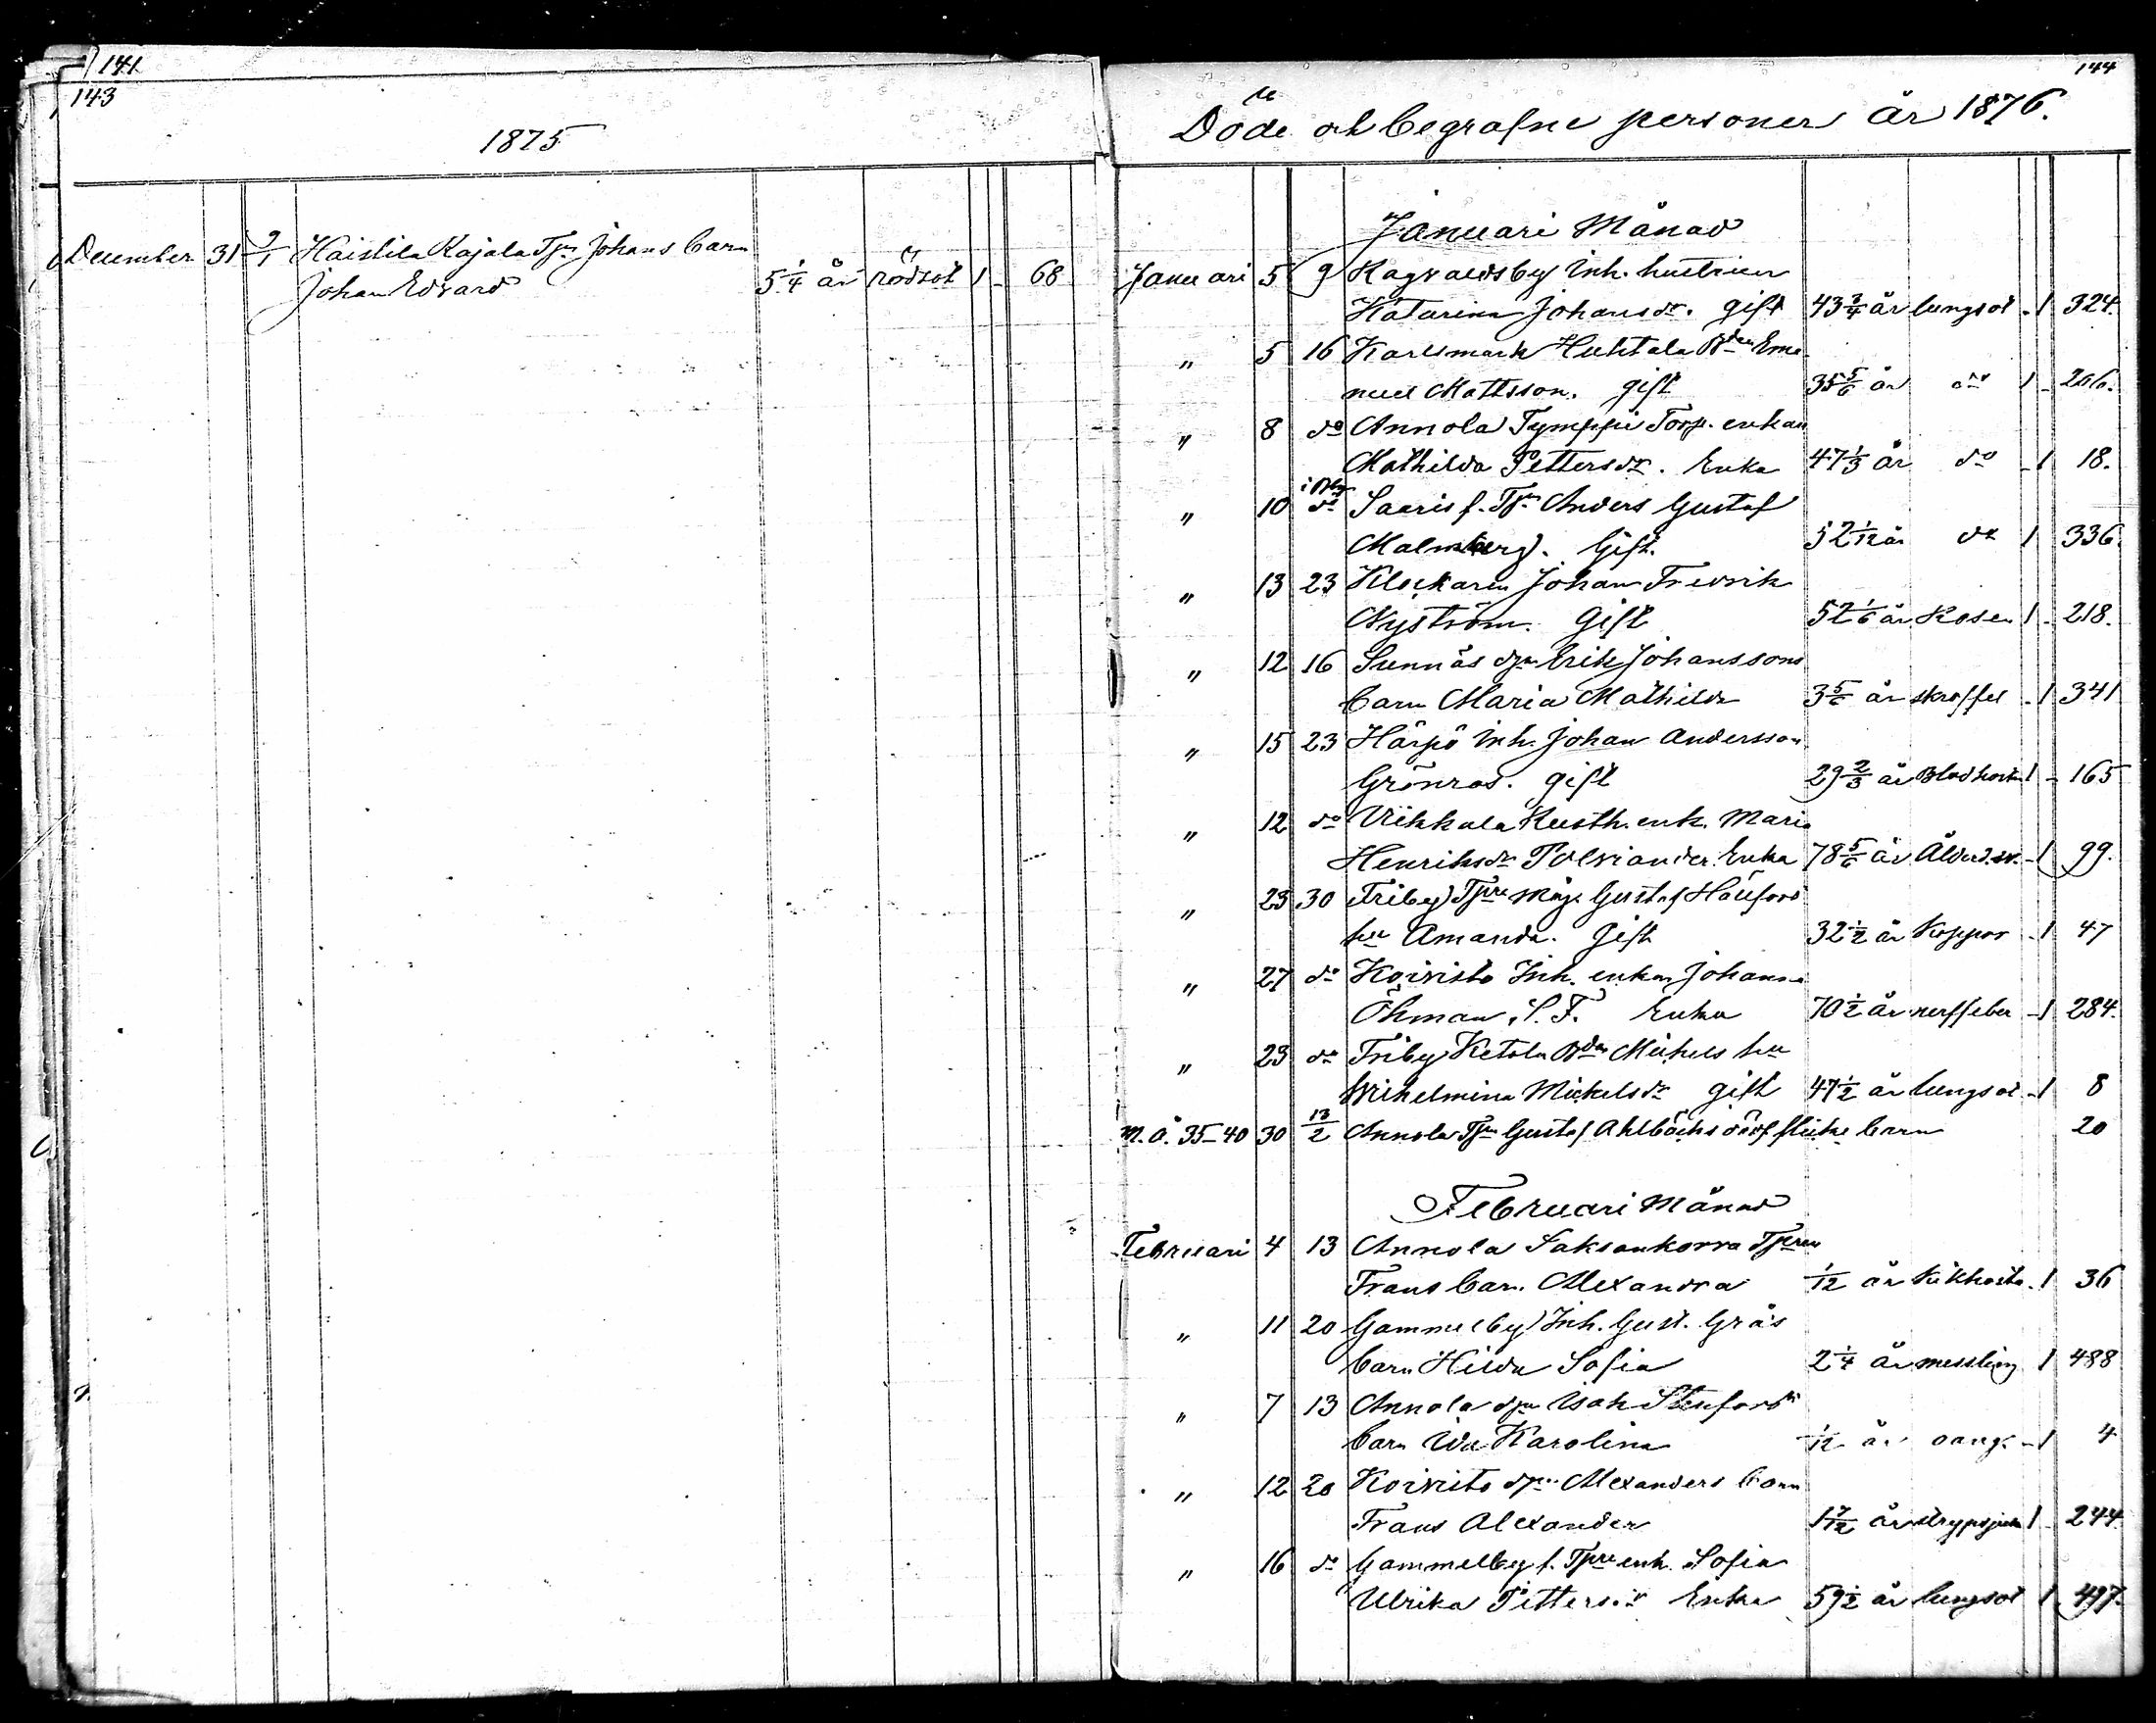 141
143
1875
December 31 9/1 Haistila Kajala Tjn Johans barn
Johan Edvard 5 1/4 år rödsot 1 - 68
144
Döde och begrafne personer år 1876.
Januari Månad
Januari 5 9 Ragvaldsby Inh. hustrun
Katarina Johansdr. gift 43 3/4 år lungsot - 1 324.
" 5 16 Karlsmark Huhtala Bden Ema-
nuel Mattsson. gift 35 5/6 år do 1 - 206.
" 8 do Annola Tymppi Torp. enkan
Mathilda Pettersdr. Enka 47 1/3 år do - 1 18.
" 10 do Saaris f. Tjn Anders Gustaf
Malmberg. Gift. 52 1/12 år do 1 336.
" 13 23 Klockaren Johan Fredrik
Nyström. Gift 52 1/6 år Rosen 1 - 218.
" 12 16 Sunnäs djn Erik Johanssons
barn Maria Mathilda 3 5/6 år skroffel - 1 341
" 15 23 Härpö Inh. Johan Andersson
Grönros. gift 29 2/3 år Blodhosta 1 - 165
" 12 do Viikkala Rusth. enk. Maria
Henriksdr Polviander. Enka 78 5/6 år Ålderd.sv. - 1 99.
" 23 30 Friby Tjre Gustaf
hu Amanda. Gift 32 1/2 år Koppor - 1 47
" 27 do Koivisto Inh. enkan Johanna
Öhman, S.F. Enka 70 1/2 år nerffeber - 1 284.
" 23 do Friby Ketola Bden Mickels hu
Wilhelmina Mickelsdr gift 47 1/2 år lungsot - 1 8
M.å. 35-40 30 13/2 Annola Tjn Gustaf Ahlbäcks dödf flicke barn 20
Februari Månad
Februari 4 13 Annola Saksankorva Tjren
Frans barn. Alexandra 1/12 år kikhosta - 1 36
" 11 20 Gammelby Inh. Gust. Gräs
barn Hilda Sofia 2 1/4 år messling 1 488
" 7 13 Annola djn Isak Stenfors
barn Ida Karolina 1/12 år oang. - 1 4
" 12 20 Koivisto djn Alexanders barn
Frans Alexander 1 7/12 år strypsjuka 1 - 244.
" 16 do Gammelby f. Tjre enk. Sofia
Ulrika Pettersdr Enka 59 1/2 år lungsot 1 497.